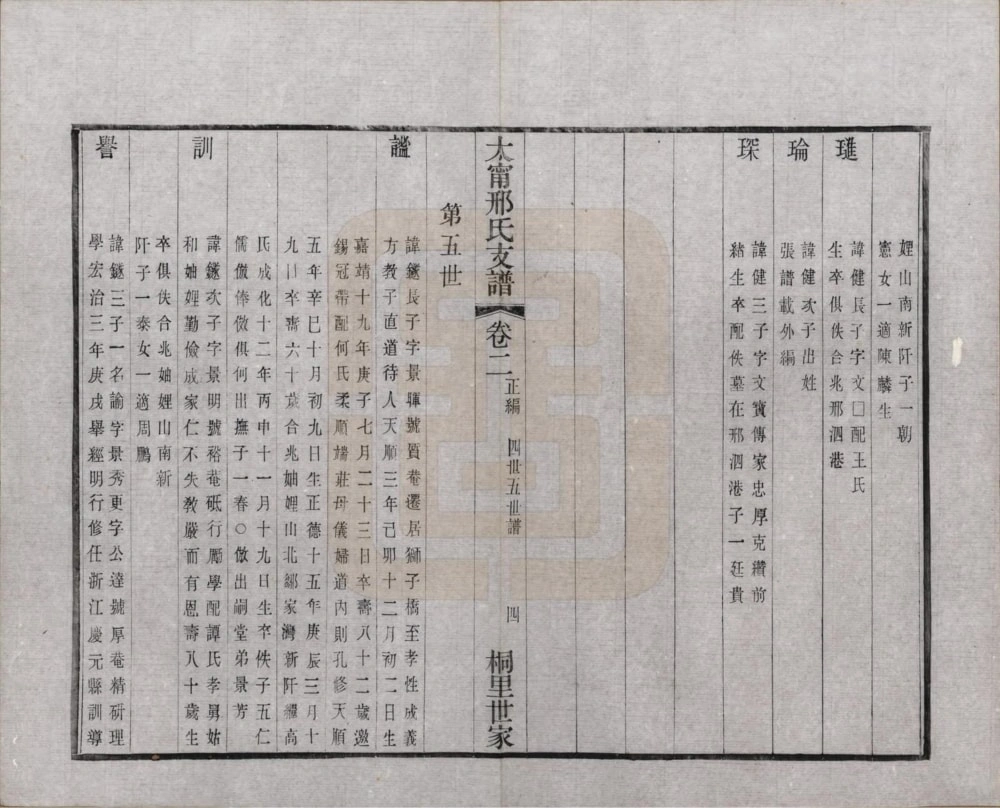 娌山南新阡子一朝
憲女一適陳麟生
璡
諱健長子字文□配王氏
生卒俱佚合兆邢泗港
瑜
諱健次子出姓
張譜載外編
琛
諱健三子字文寶傳家忠厚克纘前
緒生卒配佚墓在邢泗港子一廷貴
太甯邢氏支譜
卷二
正編
四世五世譜
四
桐里世家
第五世
謐
諱鏸長子字景暉號質菴遷居獅子橋至孝性成義
方教子直道待人天順三年己卯十二月初二日生
嘉靖十九年庚子七月二十三日卒壽八十二歲邀
錫冠帶配何氏柔順端莊母儀婦道內則孔修天順
五年辛巳十月初九日生正德十五年庚辰三月十
九日卒壽六十歲合兆妯娌山北鄒家灣新阡繼高
氏成化十二年丙申十一月十九日生卒佚子五仁
儒倣俸倣俱何出撫子一春○倣出嗣堂弟景芳
訓
諱鏸次子字景明號裕菴砥行勵學配譚氏孝舅姑
和妯娌勤儉成家仁不失教嚴而有恩壽八十歲生
卒俱佚合兆妯娌山南新
阡子一泰女一適周鵬
譽
諱鏸三子一名諭字景秀更字公達號厚菴精研理
學宏治三年庚戌舉經明行修任浙江慶元縣訓導